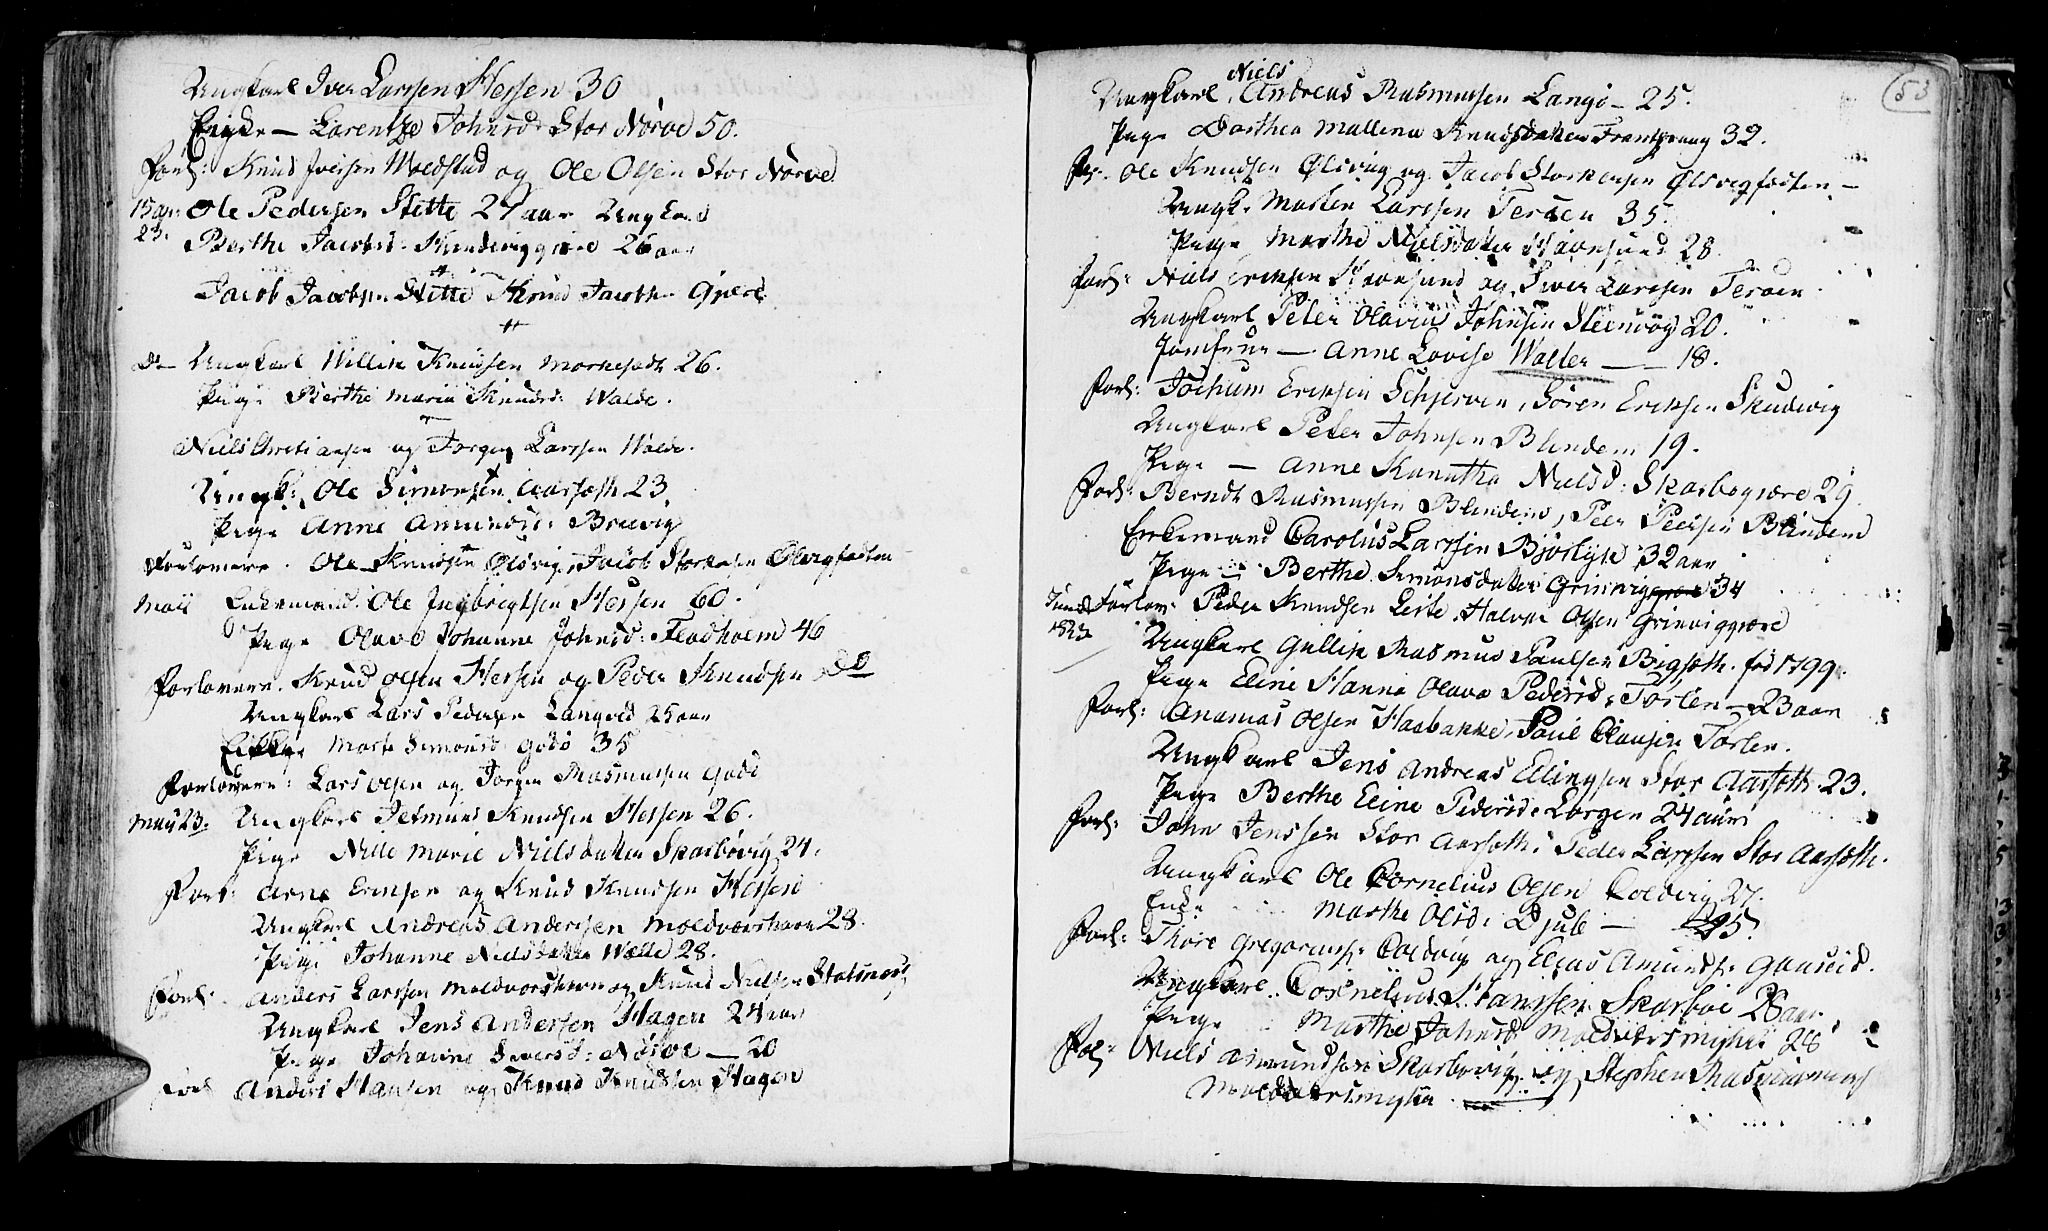 Ungkarl Iver Larssen Hessen 30
Enke — Lorentze Johnsd: Stor Nörve 50.
Forl: Knud Iversen Moldstad og Ole Olsen Stor Nörve
15 apr: Ole Pedersen Stette 27 aar Ungk
23. Berthe Jacobsd: 26 aar
Jacob Jacobsen Stette Knud Jacobs: Gjære
D— Ungkarl Willik Knudsen 26.
Pige Berthe Maria Knudsd: Walde.
Niels Christiansen og Jorgen Larssen Walde.
Ungk: Ole Simonsen Aarsoth 23
Pige Anne Amundsd: Brevig
Forlovere. Ole Knudsen Ølsvig, Jacob Storkersen Ølsvigfodten
Maii Enkemand. Ole Ingbregtsen Hessen 60.
Pige Olave Johanne Johnsd: Fladholm 46
Forlovere. Knud Olsen Hessen og Peder Knudsen Do
Ungkarl Lars Pedersen Langved 25 aar
Enke Marte Simonsd: Godö 35
Forlovere: Lars Olsen og Jorgen Rasmussen Godö
May 23. Ungkarl Jetmund Knudsen Hessen 26.
Pige Nille Marie Nielsdatter Skarbövig 24.
Forl: Arne Ericsen og Knud Knudsen Hessen
Ungkarl Andreas Andersen Moldværshavn 28.
Pige Johanne Nielsdatter Walle 28.
Forl: Anders Larssen Moldvorshavn og Knud Nielsen
Ungkarl Jens Andersen Hagen 24 aar
Pige Johanne Siversd: Nörve — 20
Forl Anders Hansen og Knud Knudsen Hagen
53
Niels
Ungkarl, Andreas Rasmussen Langö — 25.
Pige Dorthea Mallena Knudsdatter 32.
For. Ole Knudsen Ølsvig og Jacob Storkersen Ølsvigfodten —
Ungk. Morten Larssen Teröen 35.
Pige Marthe Nielsdatter Havnsund 28.
Forl: Niels Ericksen Havnsund og Siver Larssen Teröen
Ungkarl Peter Olavius Johnsen Steenvog 20.
Jomfrue — Anne Lovise Walter — — 18.
Forl: Jochum Ericksen Schjerven, Sören Ericksen Skudevig
Ungkarl Peter Johnsen Blendem 19.
Pige — Anne Kanutha Nielsd: Skarbogære 29
Forl: Berndt Rasmussen Blendem, Peer Peersen Blindem
Enkemand Carolus Larssen Björlyk 32 aar
Pige — Berthe Simonsdatter Grinvig 34
Junii Forlov: Peder Knudsen Leite, Halvor Olsen Grinviggære
1823
Ungkarl Gullik Rasmus Paulsen Bigseth. fod 1799.
Pige Eline Hanna Olava Pedersd: Torlen — 23 aar
Forl: Ananias Olsen Hasbakke, Paul Clausen Torlen.
Ungkarl Jens Andreas Ellingsen Stor Aarsoth 23.
Pige Berthe Eline Pedersd: Lorgen 24 aar
Forl: John Jenssen Stor Aarsoth. Peder Larssen Stor Aarsoth.
Ungkarl Ole Cornelius Olsen Coldvig 27.
Enke Marthe Olsd: Djub — 35.
Forl: Thore Gregoriuss: Coldvig og Elias Amunds: Gaaseid.
Ungkarl Cornelius Hanssen Skarböe 26 aar.
Pige Marthe Johnsd: 28
Forl: Niels Amundsen Skarbövig og Stephen